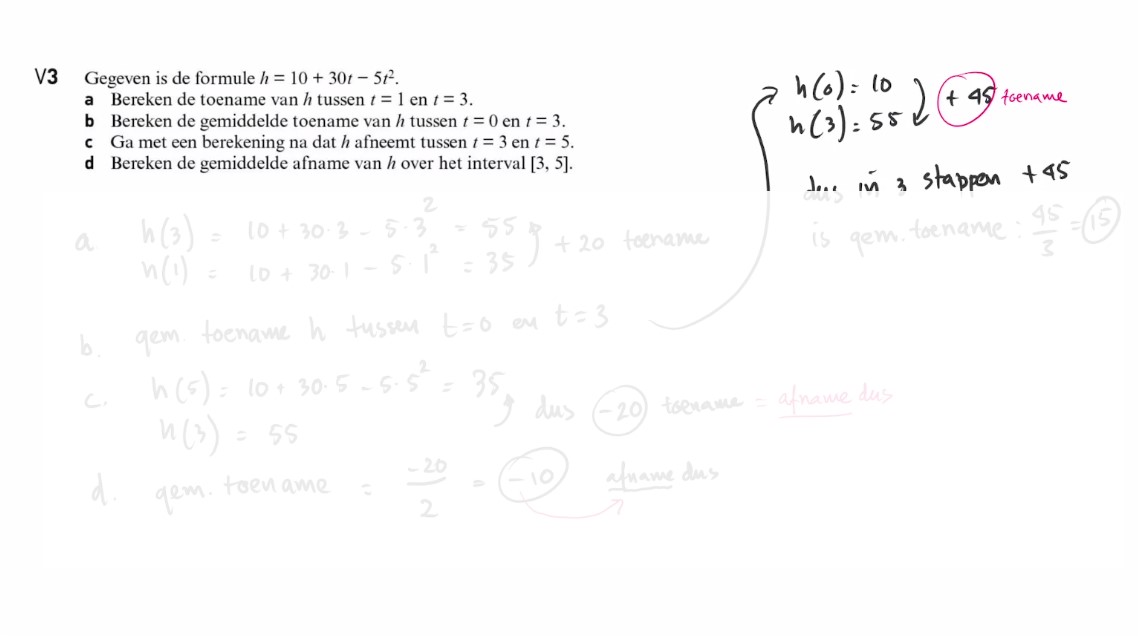 V3 Gegeven is de formule h = 10 + 30t − 5t².
a Bereken de toename van h tussen t = 1 en t = 3.
b Bereken de gemiddelde toename van h tussen t = 0 en t = 3.
c Ga met een berekening na dat h afneemt tussen t = 3 en t = 5.
d Bereken de gemiddelde afname van h over het interval [3, 5].
h(0) = 10
h(3) = 55 + 45 toename
dus in 3 stappen +45
is gem. toename : 45/3 = 15
a h(3) = 10 + 30·3 − 5·3² = 55
h(1) = 10 + 30·1 − 5·1² = 35 + 20 toename
b. gem. toename h tussen t=0 en t=3
c. h(5) = 10 + 30·5 − 5·5² = 35
h(3) = 55 dus −20 toename = afname dus
d. gem. toename = −20/2 = −10 afname dus